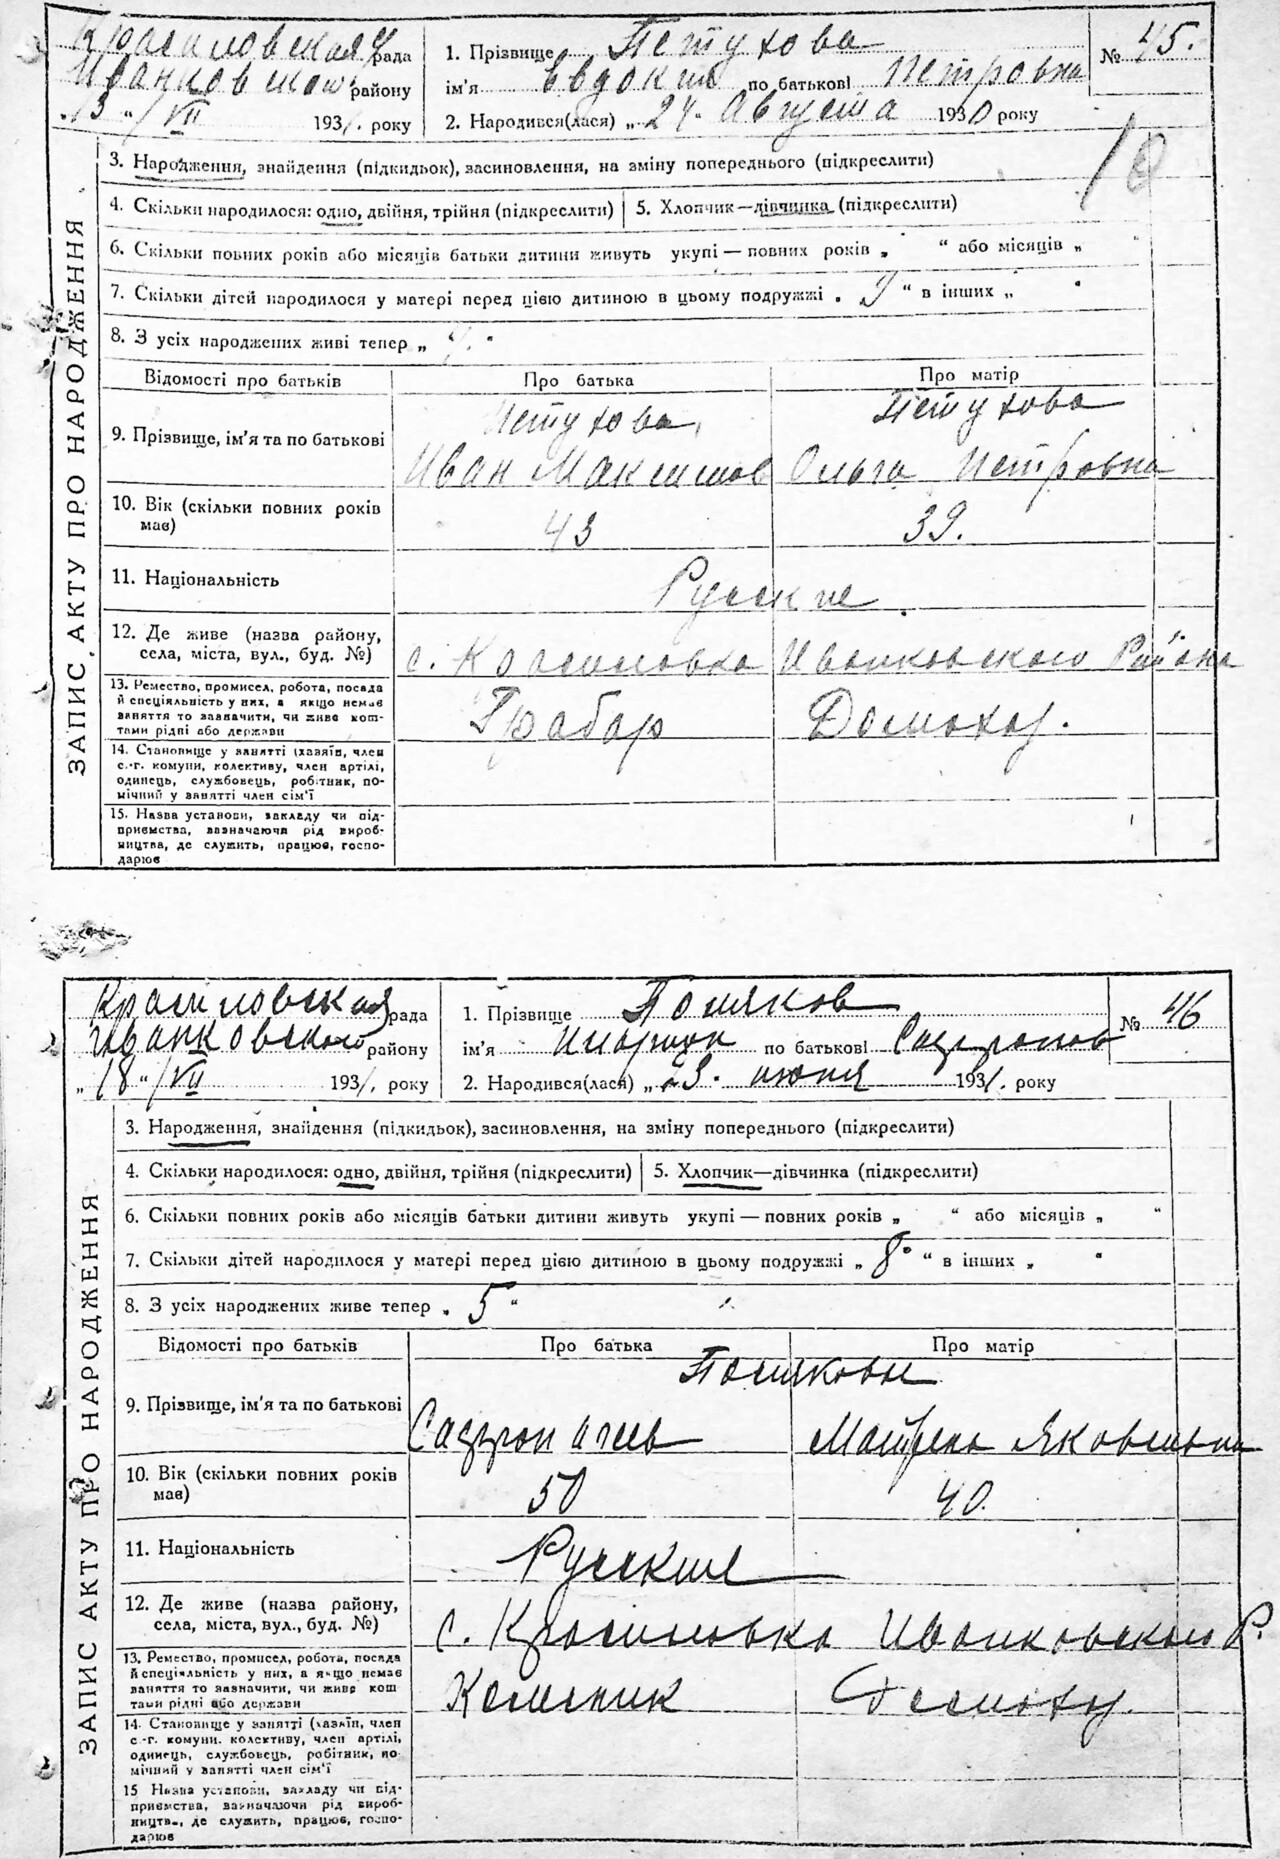 Красиловская рада
Иванковского району
„13 “ /VII 1931. року
1. Прізвище Петухова
ім'я Евдокия по батькові Петровна
2. Народився(лася) „ 24. Августа 1930 року
№ 45.
10
ЗАПИС АКТУ ПРО НАРОДЖЕННЯ
3. Народження, знайдення (підкидьок), засиновлення, на зміну попереднього (підкреслити)
4. Скільки народилося: одно, двійня, трійня (підкреслити) 5. Хлопчик—дівчинка (підкреслити)
6. Скільки повних років або місяців батьки дитини живуть укупі — повних років „ “ або місяців „ “
7. Скільки дітей народилося у матері перед цією дитиною в цьому подружжі „ 9 “ в інших „ “
8. З усіх народжених живі тепер „ “
Відомості про батьків Про батька Про матір
9. Прізвище, ім'я та по батькові
Петухова Петухова
Иван Максимов Ольга Петровна
10. Вік (скільки повних років має)
43 39.
11. Національність
Русские
12. Де живе (назва району, села, міста, вул., буд. №)
с. Красиловка Иванковского Района
13. Ремество, промисел, робота, посада й спеціяльність у них, а якщо немає заняття то зазначити, чи живе коштами рідні або держави
Грабар Домохоз.
14. Становище у занятті (хазяїн, член с.-г. комуни, колективу, член артілі, одинець, службовець, робітник, помічний у занятті член сім'ї
15. Назва установи, закладу чи підприємства, зазначаючи рід виробництва, де служить, працює, господарює
Красиловская рада
Иванковского району
„ 18 “ /VII 1931. року
1. Прізвище Поляков
ім'я по батькові
2. Народився(лася) „ 23. июня 1931. року
№ 46
ЗАПИС АКТУ ПРО НАРОДЖЕННЯ
3. Народження, знайдення (підкидьок), засиновлення, на зміну попереднього (підкреслити)
4. Скільки народилося: одно, двійня, трійня (підкреслити) 5. Хлопчик—дівчинка (підкреслити)
6. Скільки повних років або місяців батьки дитини живуть укупі — повних років „ “ або місяців „ “
7. Скільки дітей народилося у матері перед цією дитиною в цьому подружжі „ 8 “ в інших „ “
8. З усіх народжених живе тепер „ 5 “
Відомості про батьків Про батька Про матір
9. Прізвище, ім'я та по батькові
Поляковы
Матрена Яковлевна
10. Вік (скільки повних років має)
50 40.
11. Національність
Русския
12. Де живе (назва району, села, міста, вул., буд. №)
с. Красиловка Иванковского Р.
13. Ремество, промисел, робота, посада й спеціяльність у них, а якщо немає заняття то зазначити, чи живе коштами рідні або держави
Каменник Домохоз.
14. Становище у занятті (хазяїн, член с.-г. комуни. колективу, член артілі, одинець, службовець, робітник, помічний у занятті член сім'ї
15 Назва установи, закладу чи підприємства, зазначаючи рід виробництва, де служить, працює, господарює